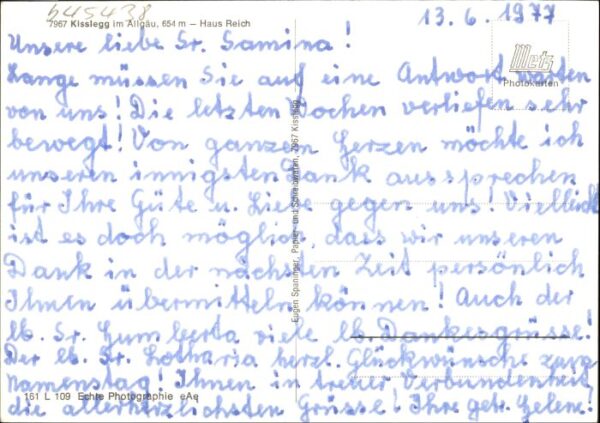 645438
7967 Kisslegg im Allgäu, 654 m — Haus Reich
13.6.1977
Metz
Photokarten
Unsere liebe Sr. Samina!
Lange müssen Sie auf eine Antwort warten
von uns! Die letzten Wochen verliefen sehr
bewegt! Von ganzen Herzen möchte ich
unseren innigsten Dank aussprechen
für Ihre Güte u. Liebe gegen uns! Vielleicht
ist es doch möglich, dass wir unseren
Dank in der nächsten Zeit persönlich
Ihnen übermitteln können! Auch der
lb. Sr. Humberta viele lb. Dankesgrüsse!
Der lb. Sr. Lotharia herzl. Glückwünsche zum
Namenstag! Ihnen in treuer Verbundenheit
die allerherzlichsten Grüsse! Ihre getr. Helene!
Eugen Spanninger, Papier- und Schreibwaren, 7967 Kisslegg
161 L 109 Echte Photographie eAe